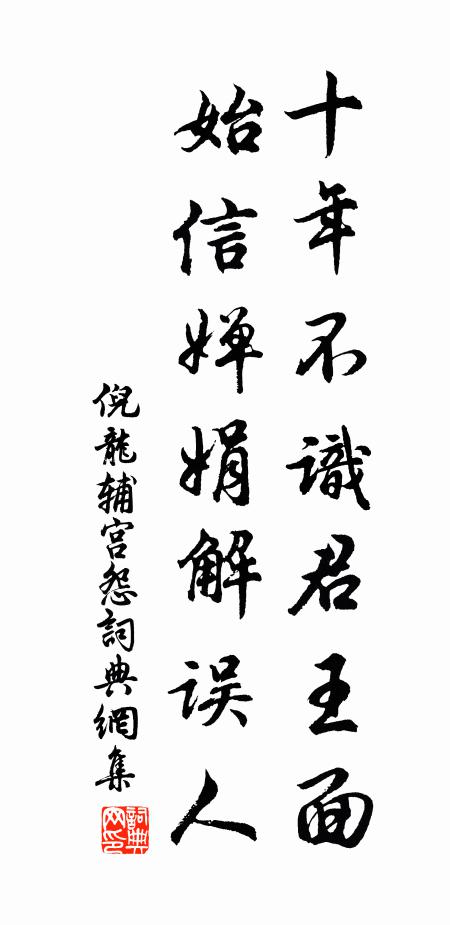 十年不識君王面
始信婵娟解误人
倪龍辅宫怨詞典網集
詞典网印